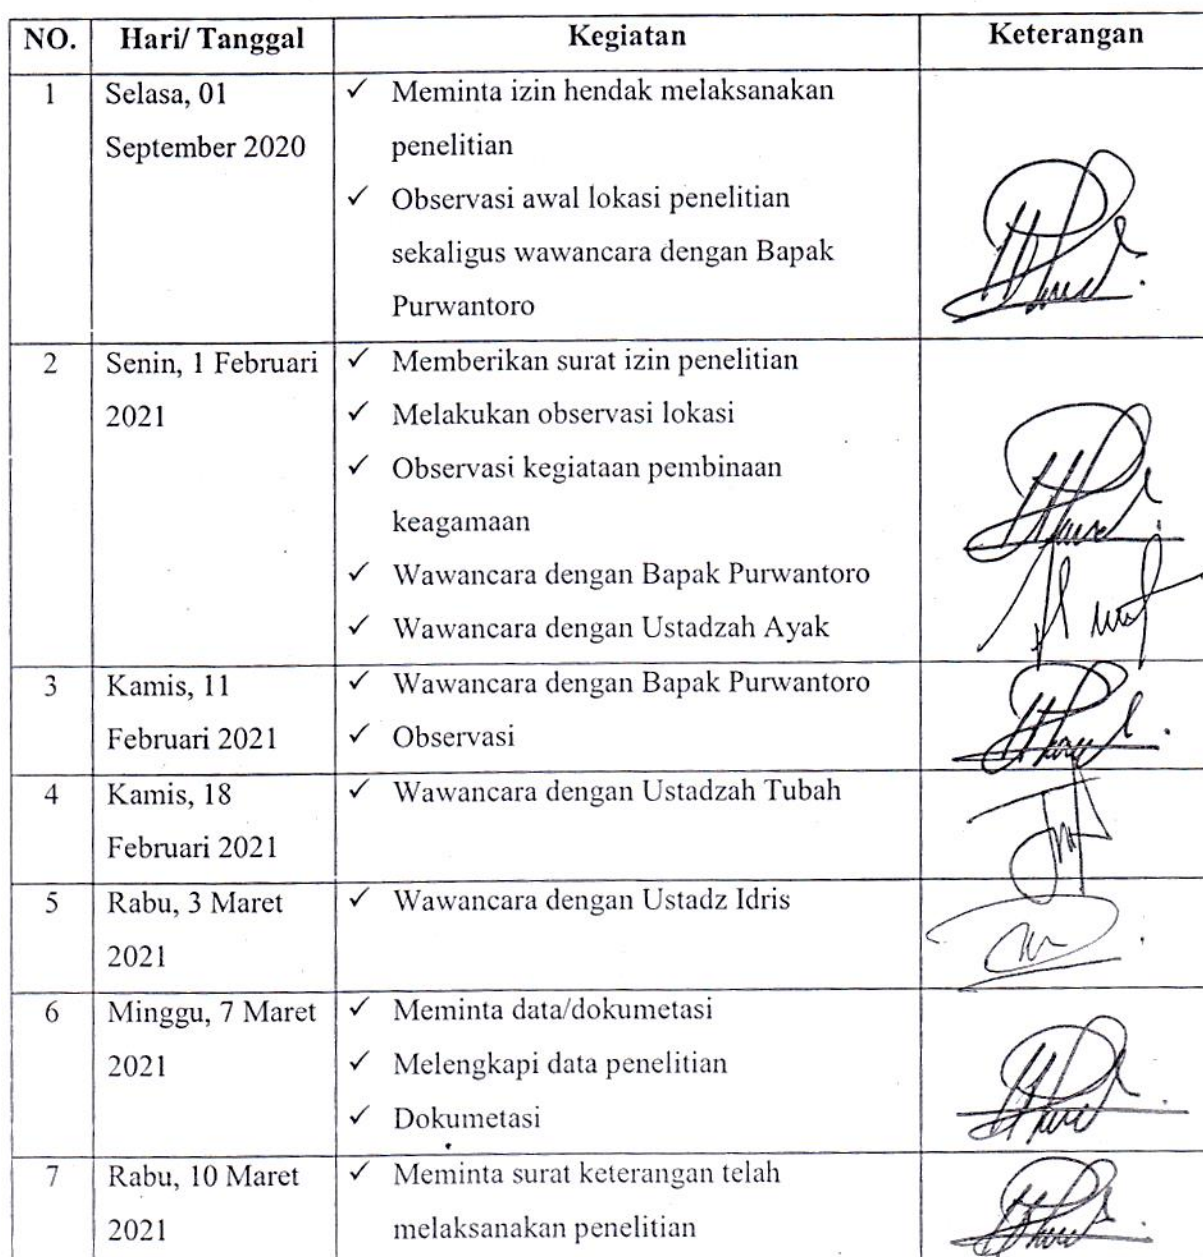 NO. Hari/ Tanggal Kegiatan Keterangan
1 Selasa, 01 ✓ Meminta izin hendak melaksanakan
September 2020 penelitian
✓ Observasi awal lokasi penelitian
sekaligus wawancara dengan Bapak
Purwantoro
2 Senin, 1 Februari ✓ Memberikan surat izin penelitian
2021 ✓ Melakukan observasi lokasi
✓ Observasi kegiataan pembinaan
keagamaan
✓ Wawancara dengan Bapak Purwantoro
✓ Wawancara dengan Ustadzah Ayak
3 Kamis, 11 ✓ Wawancara dengan Bapak Purwantoro
Februari 2021 ✓ Observasi
4 Kamis, 18 ✓ Wawancara dengan Ustadzah Tubah
Februari 2021
5 Rabu, 3 Maret ✓ Wawancara dengan Ustadz Idris
2021
6 Minggu, 7 Maret ✓ Meminta data/dokumetasi
2021 ✓ Melengkapi data penelitian
✓ Dokumetasi
7 Rabu, 10 Maret ✓ Meminta surat keterangan telah
2021 melaksanakan penelitian